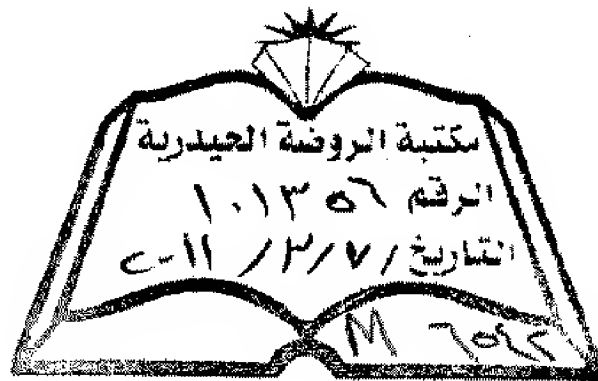 مكتبة الروضة الحيدرية
الرقم ١٠١٣٥٦
التاريخ ٧/٣/١١
M ٦٥٤٢